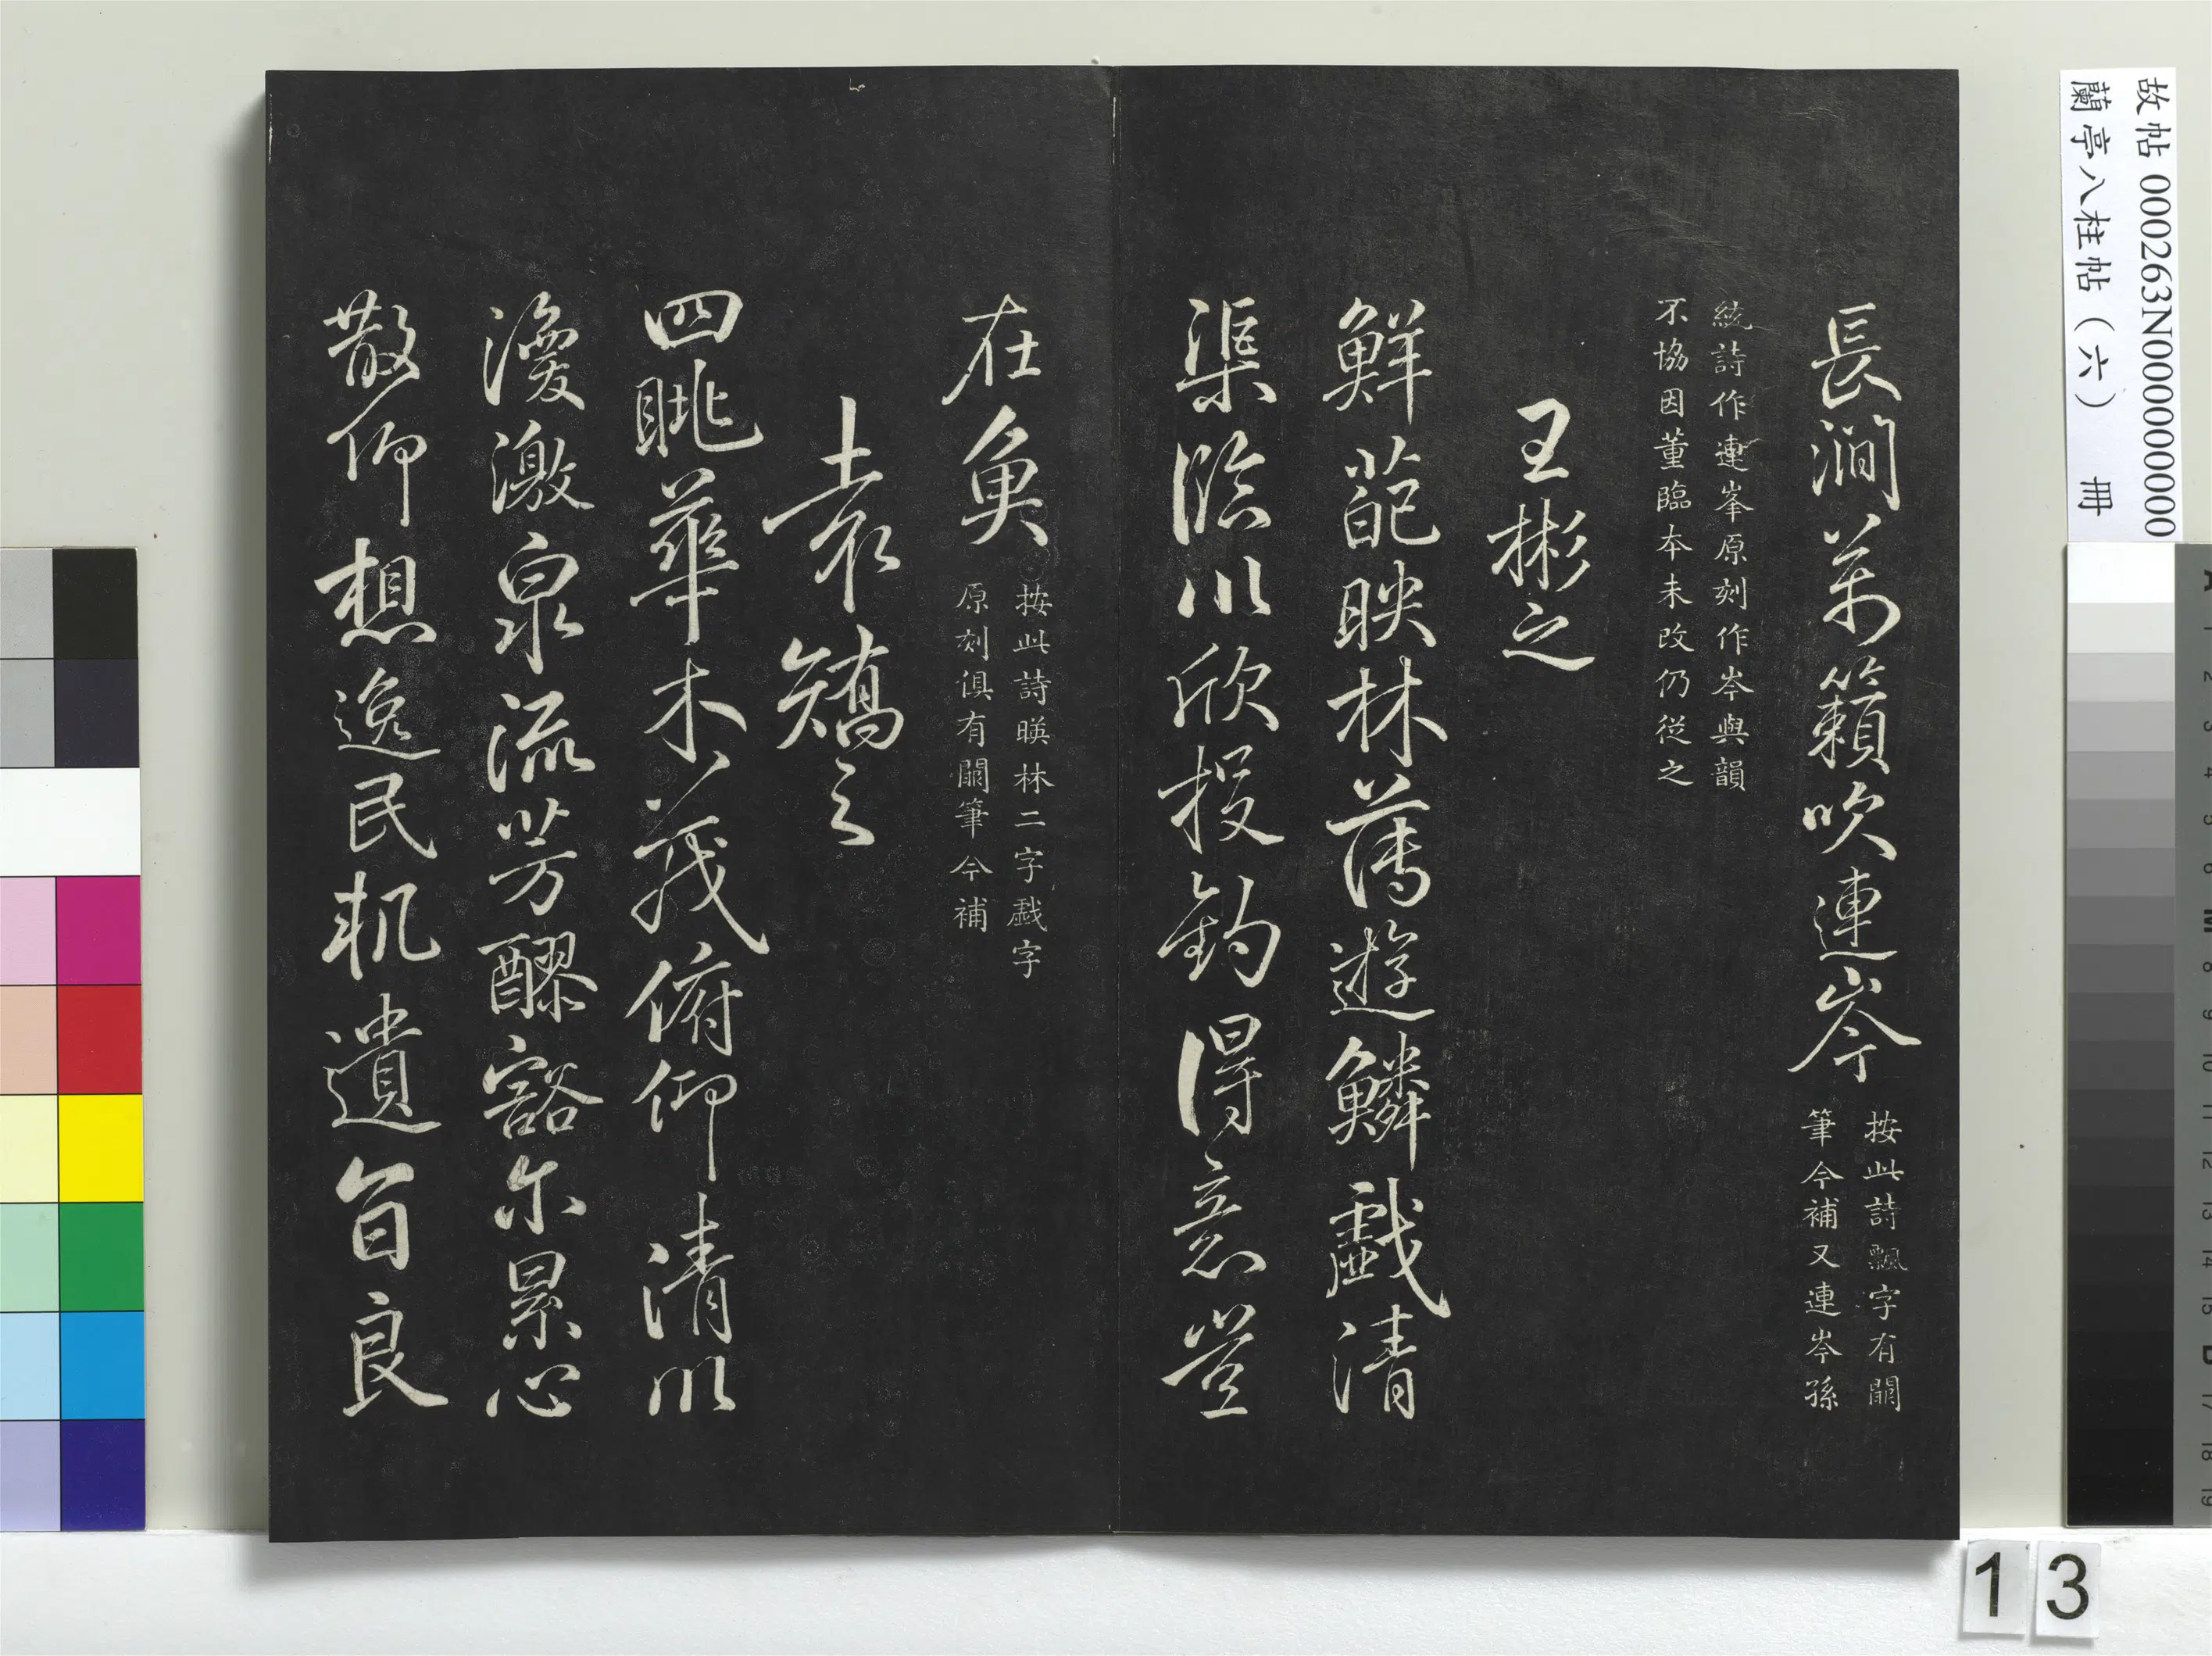 長澗萬籟吹連岑
按此詩飄字有闕
筆今補又連岑孫
統詩作連峯原刻作岑與韻
不協因董臨本未改仍從之
王彬之
鮮葩映林薄遊鱗戲清
渠臨川欣投釣得意豈
在魚
按此詩暎林二字戲字
原刻俱有闕筆今補
袁矯之
四眺華木茂俯仰清川
渙激泉流芳醪豁尔累心
散仰想逸民軌遺旨良
故帖 000263N000000000
蘭亭八柱帖（六） 冊
13